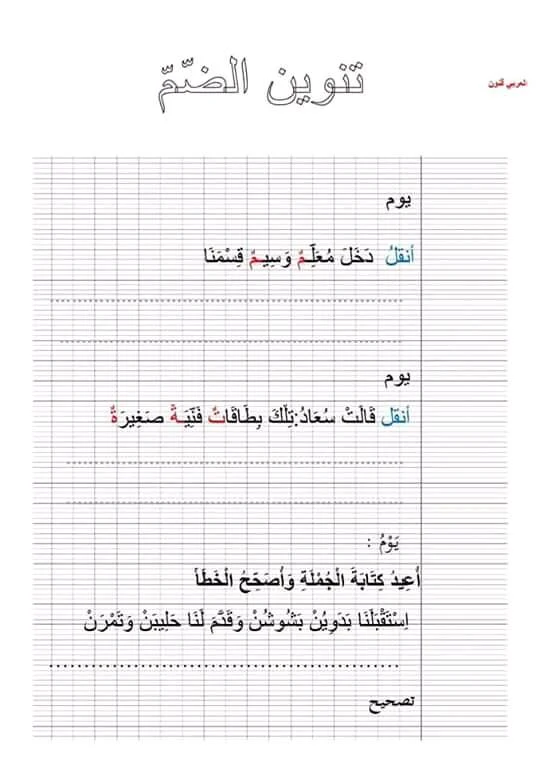 تنوين الضّمّ
العربي المدون
يوم
أنقلُ دَخَلَ مُعَلِّـمٌ وَسِيـمٌ قِسْمَنَا
يوم
أنقل قَالَتْ سُعَادُ:تِلْكَ بِطَاقَاتٌ فَنِّيَـةٌ صَغِيرَةٌ
يَوْمُ :
أُعِيدُ كِتَابَةَ الْجُمْلَةِ وَأُصَحِّحُ الْخَطَأَ
اِسْتَقْبَلَنَا بَدَوِيُنْ بَشُوشُنْ وَقَدَّمَ لَنَا حَلِيبَنْ وَتَمْرَنْ
تصحيح